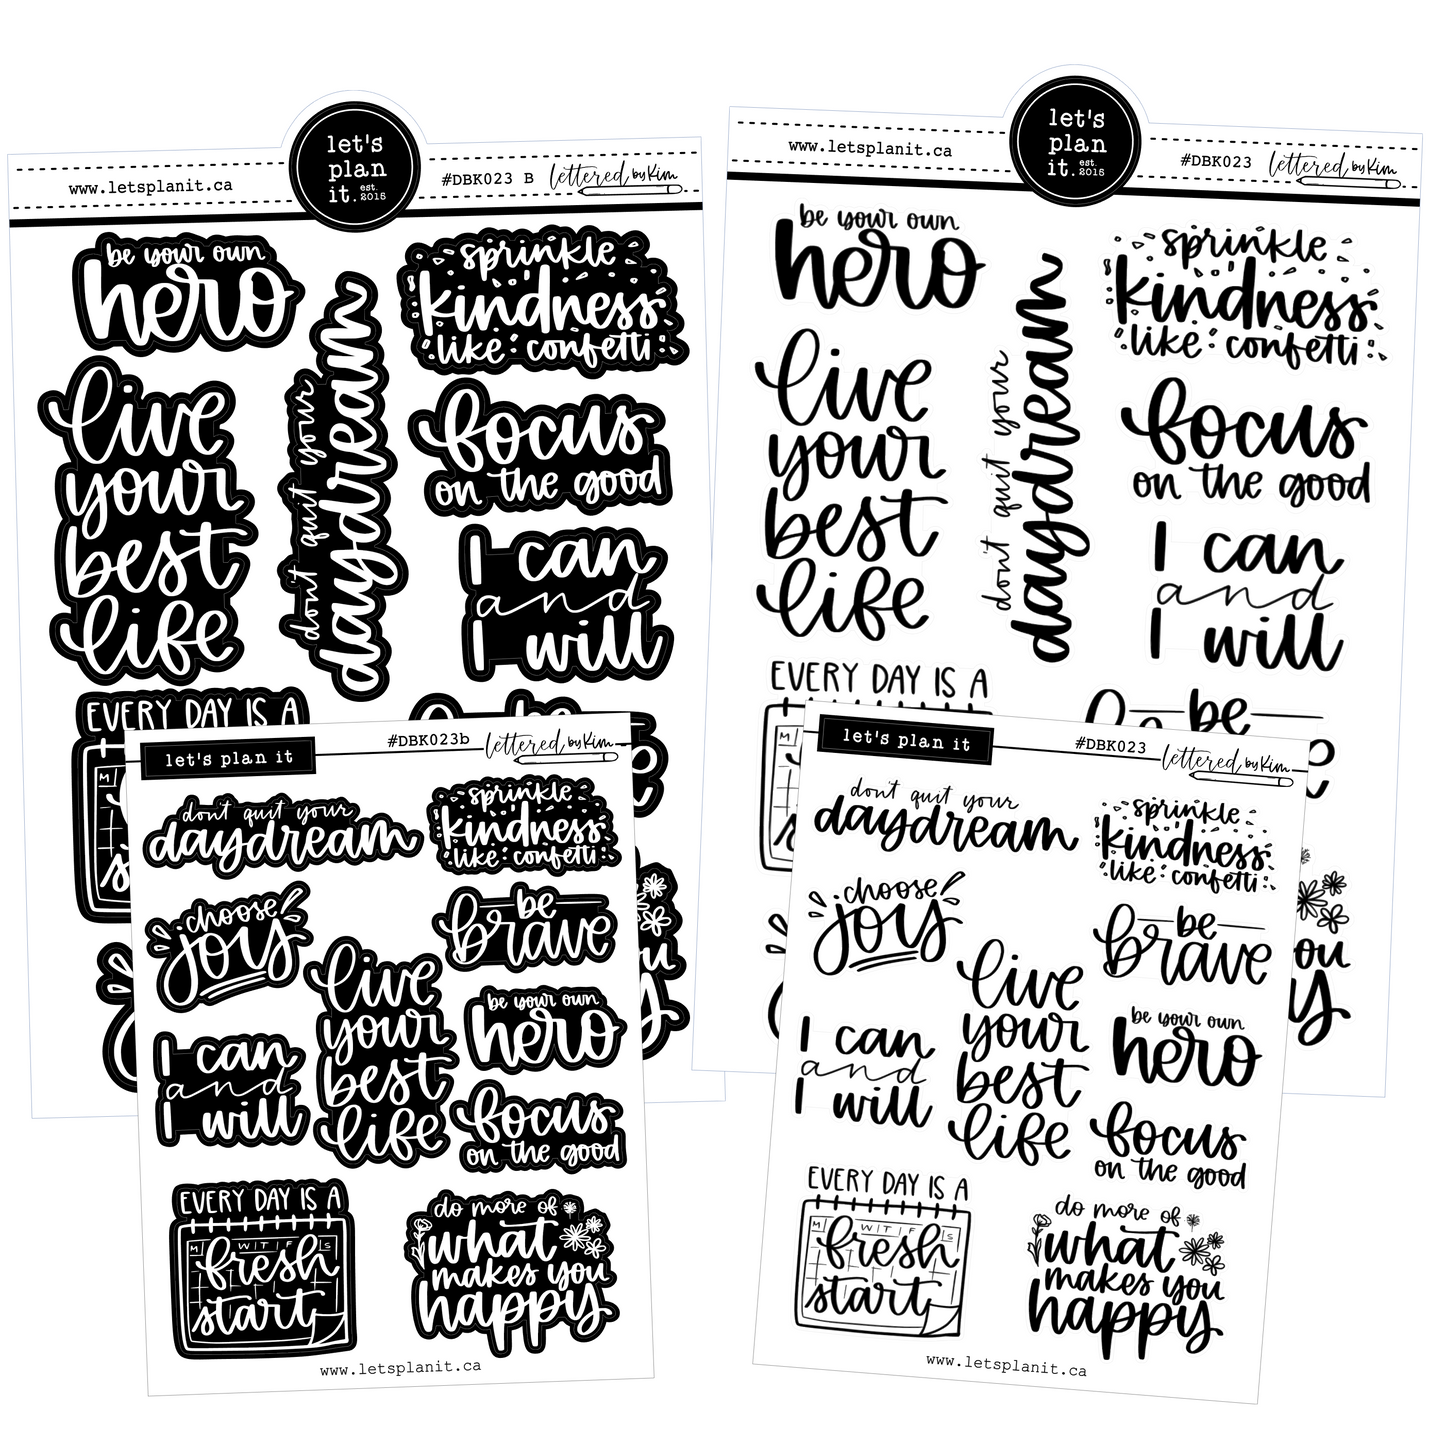 let's
plan
it. est.
2015
www.letsplanit.ca
#DBK023 B
lettered by Kim
be your own
hero
sprinkle
kindness
like confetti
don't quit your
daydream
live
your
best
life
focus
on the good
I can
and
I will
EVERY DAY IS A
be
let's
plan
it. est.
2015
www.letsplanit.ca
#DBK023
lettered by Kim
be your own
hero
sprinkle
kindness
like confetti
don't quit your
daydream
live
your
best
life
focus
on the good
I can
and
I will
EVERY DAY IS A
M
be
let's plan it
#DBK023b
lettered by Kim
don't quit your
daydream
sprinkle
kindness
like confetti
choose
joy
be
brave
live
your
best
life
be your own
hero
I can
and
I will
focus
on the good
EVERY DAY IS A
M W T F S
fresh
start
do more of
what
makes you
happy
www.letsplanit.ca
let's plan it
#DBK023
lettered by Kim
don't quit your
daydream
sprinkle
kindness
like confetti
choose
joy
be
brave
live
your
best
life
be your own
hero
I can
and
I will
focus
on the good
EVERY DAY IS A
M W T F S
fresh
start
do more of
what
makes you
happy
www.letsplanit.ca